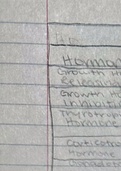 Hormon
Growth H
Releasing
Growth Ho
Inhibiti
Thyrotrop
Hormone
Corticotro
Hormone